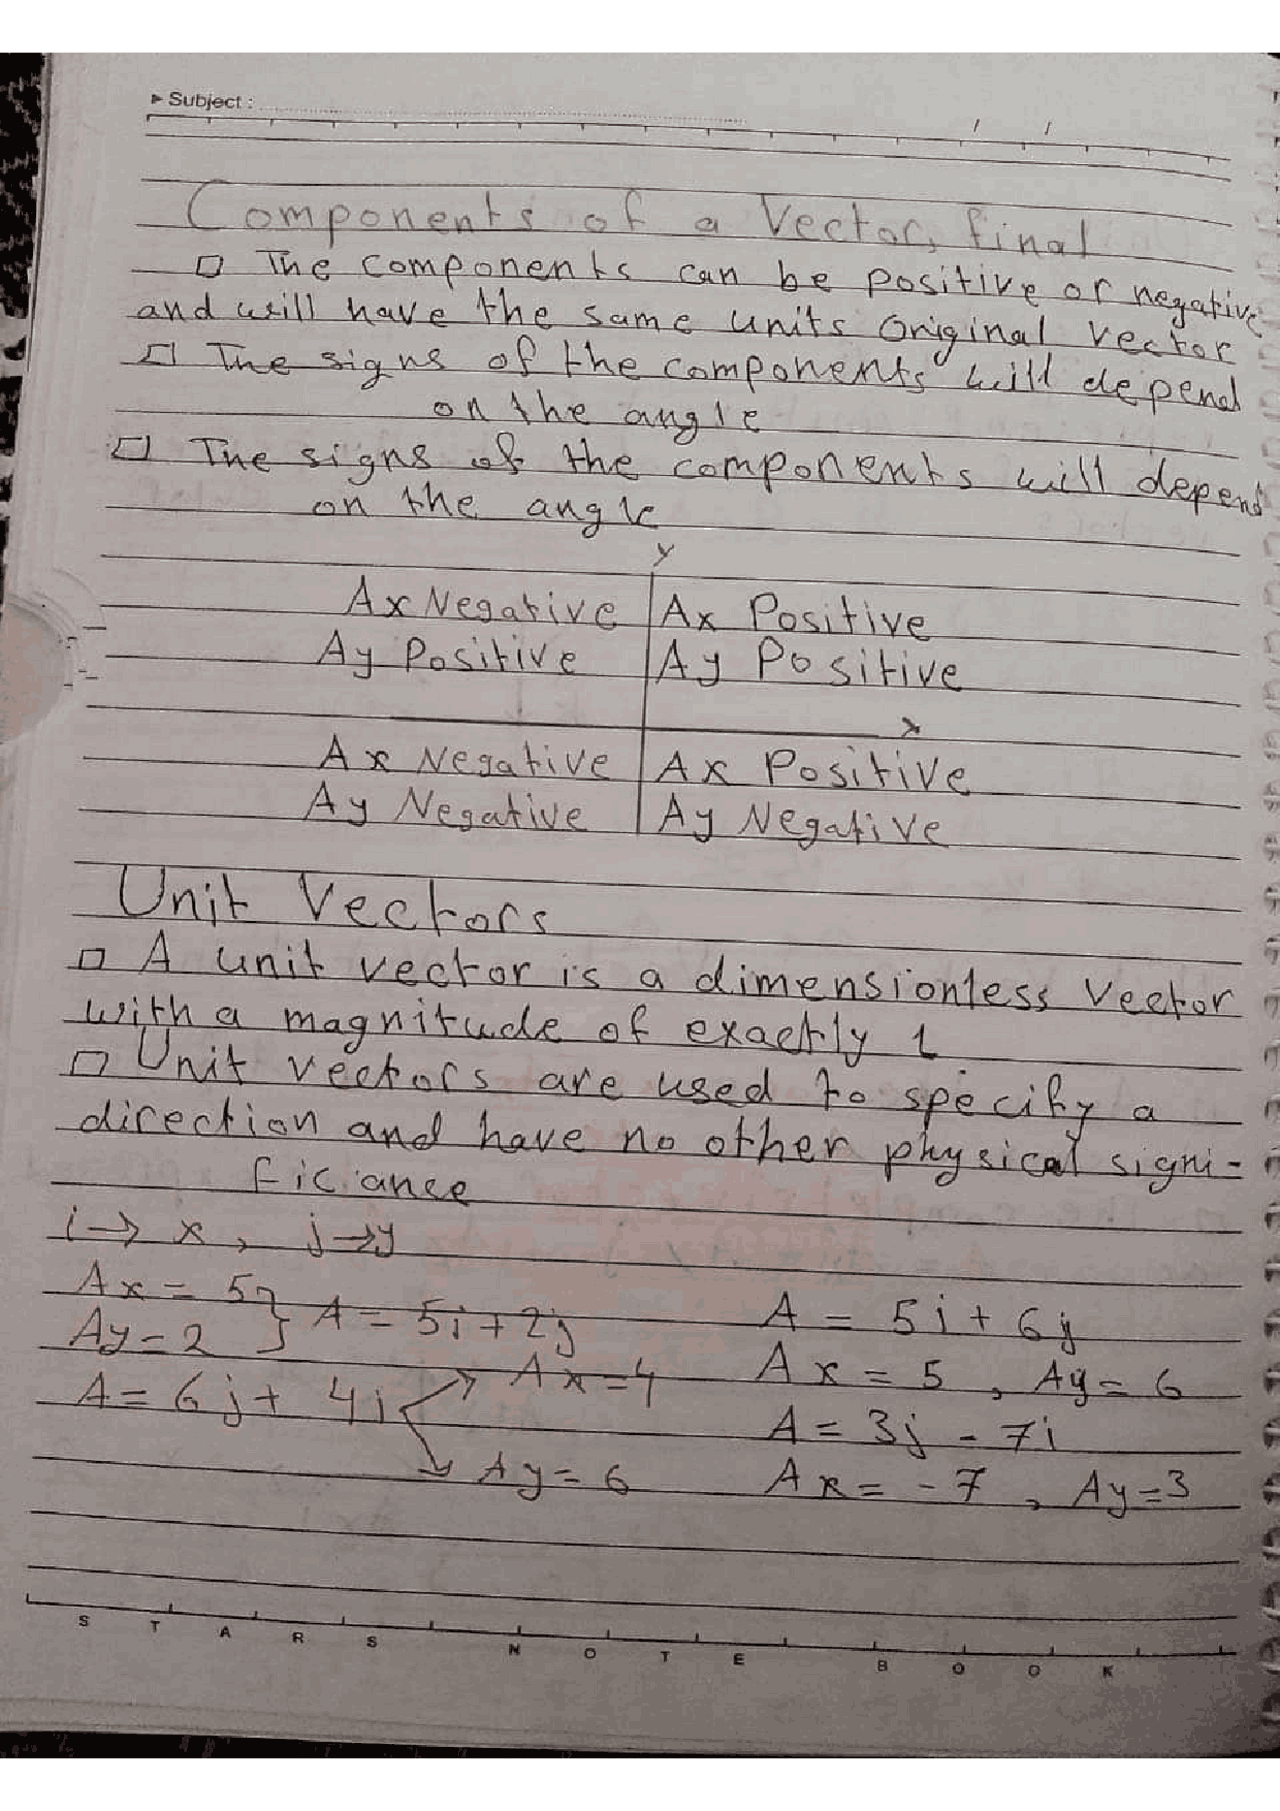 ▸ Subject :
/ /
Components of a Vector, final
□ The components can be positive or negative
and will have the same units original vector
□ The signs of the components will depend
on the angle
□ The signs of the components will depend
on the angle
y
Ax Negative Ax Positive
Ay Positive Ay Positive
x
Ax Negative Ax Positive
Ay Negative Ay Negative
Unit Vectors
□ A unit vector is a dimensionless vector
with a magnitude of exactly 1
□ Unit vectors are used to specify a
direction and have no other physical signi-
ficance
i → x , j → y
Ax = 5
Ay = 2 } A = 5i + 2j
A = 5i + 6j
A = 6j + 4i → Ax = 4
Ax = 5 , Ay = 6
A = 3j - 7i
→ Ay = 6
Ax = -7 , Ay = 3
STARS NOTE BOOK